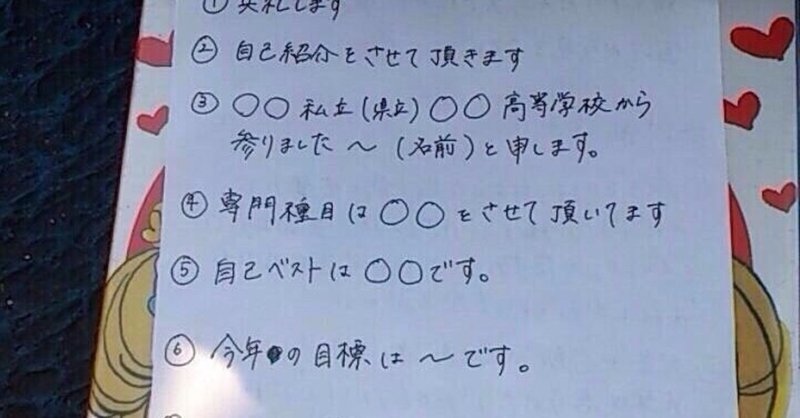 ① 失礼します
② 自己紹介をさせて頂きます
③ ○○私立(県立)○○高等学校から
参りました〜(名前)と申します。
④ 専門種目は○○をさせて頂いてます
⑤ 自己ベストは○○です。
⑥ 今年の目標は〜です。